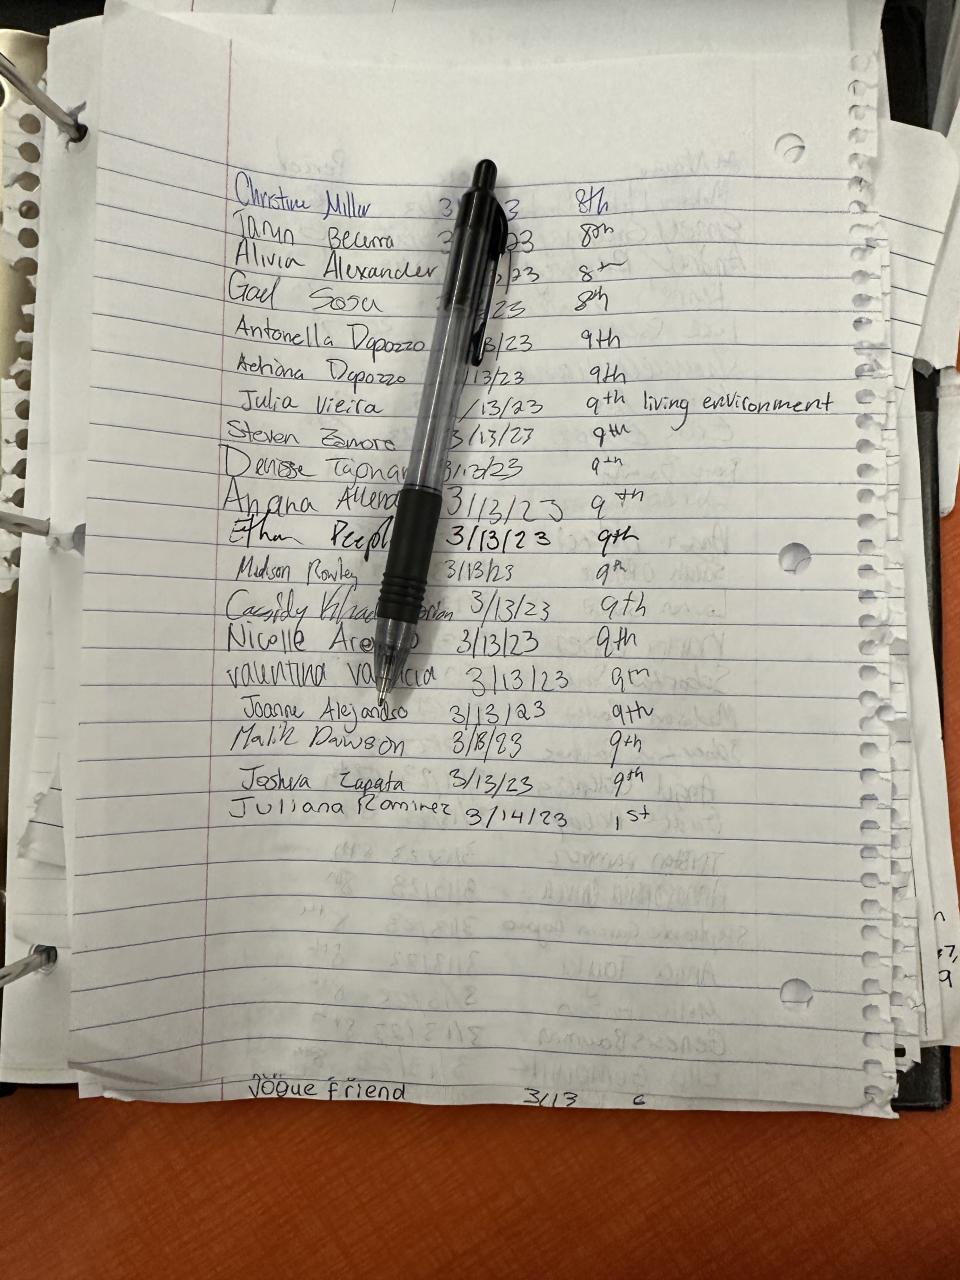 Christine Miller 3 3 8th
Becerra 3 23 8th
Alivia Alexander /23 8th
Gael Sosa 23 8th
Antonella Dapozzo 3/23 9th
Adriana Dapozzo /13/23 9th
Julia Vieira /13/23 9th living environment
Steven Zamora 3/13/23 9th
Denisse 3/13/23 9th
3/13/23 9th
Ethan Peopl 3/13/23 9th
Madison Rowley 3/13/23 9th
Cassidy 3/13/23 9th
Nicolle Are o 3/13/23 9th
Valentina Val cia 3/13/23 9th
Joanne Alejandro 3/13/23 9th
Malik Dawson 3/13/23 9th
Joshua Zapata 3/13/23 9th
Juliana Ramirez 3/14/23 1st
Vogue friend 3/13